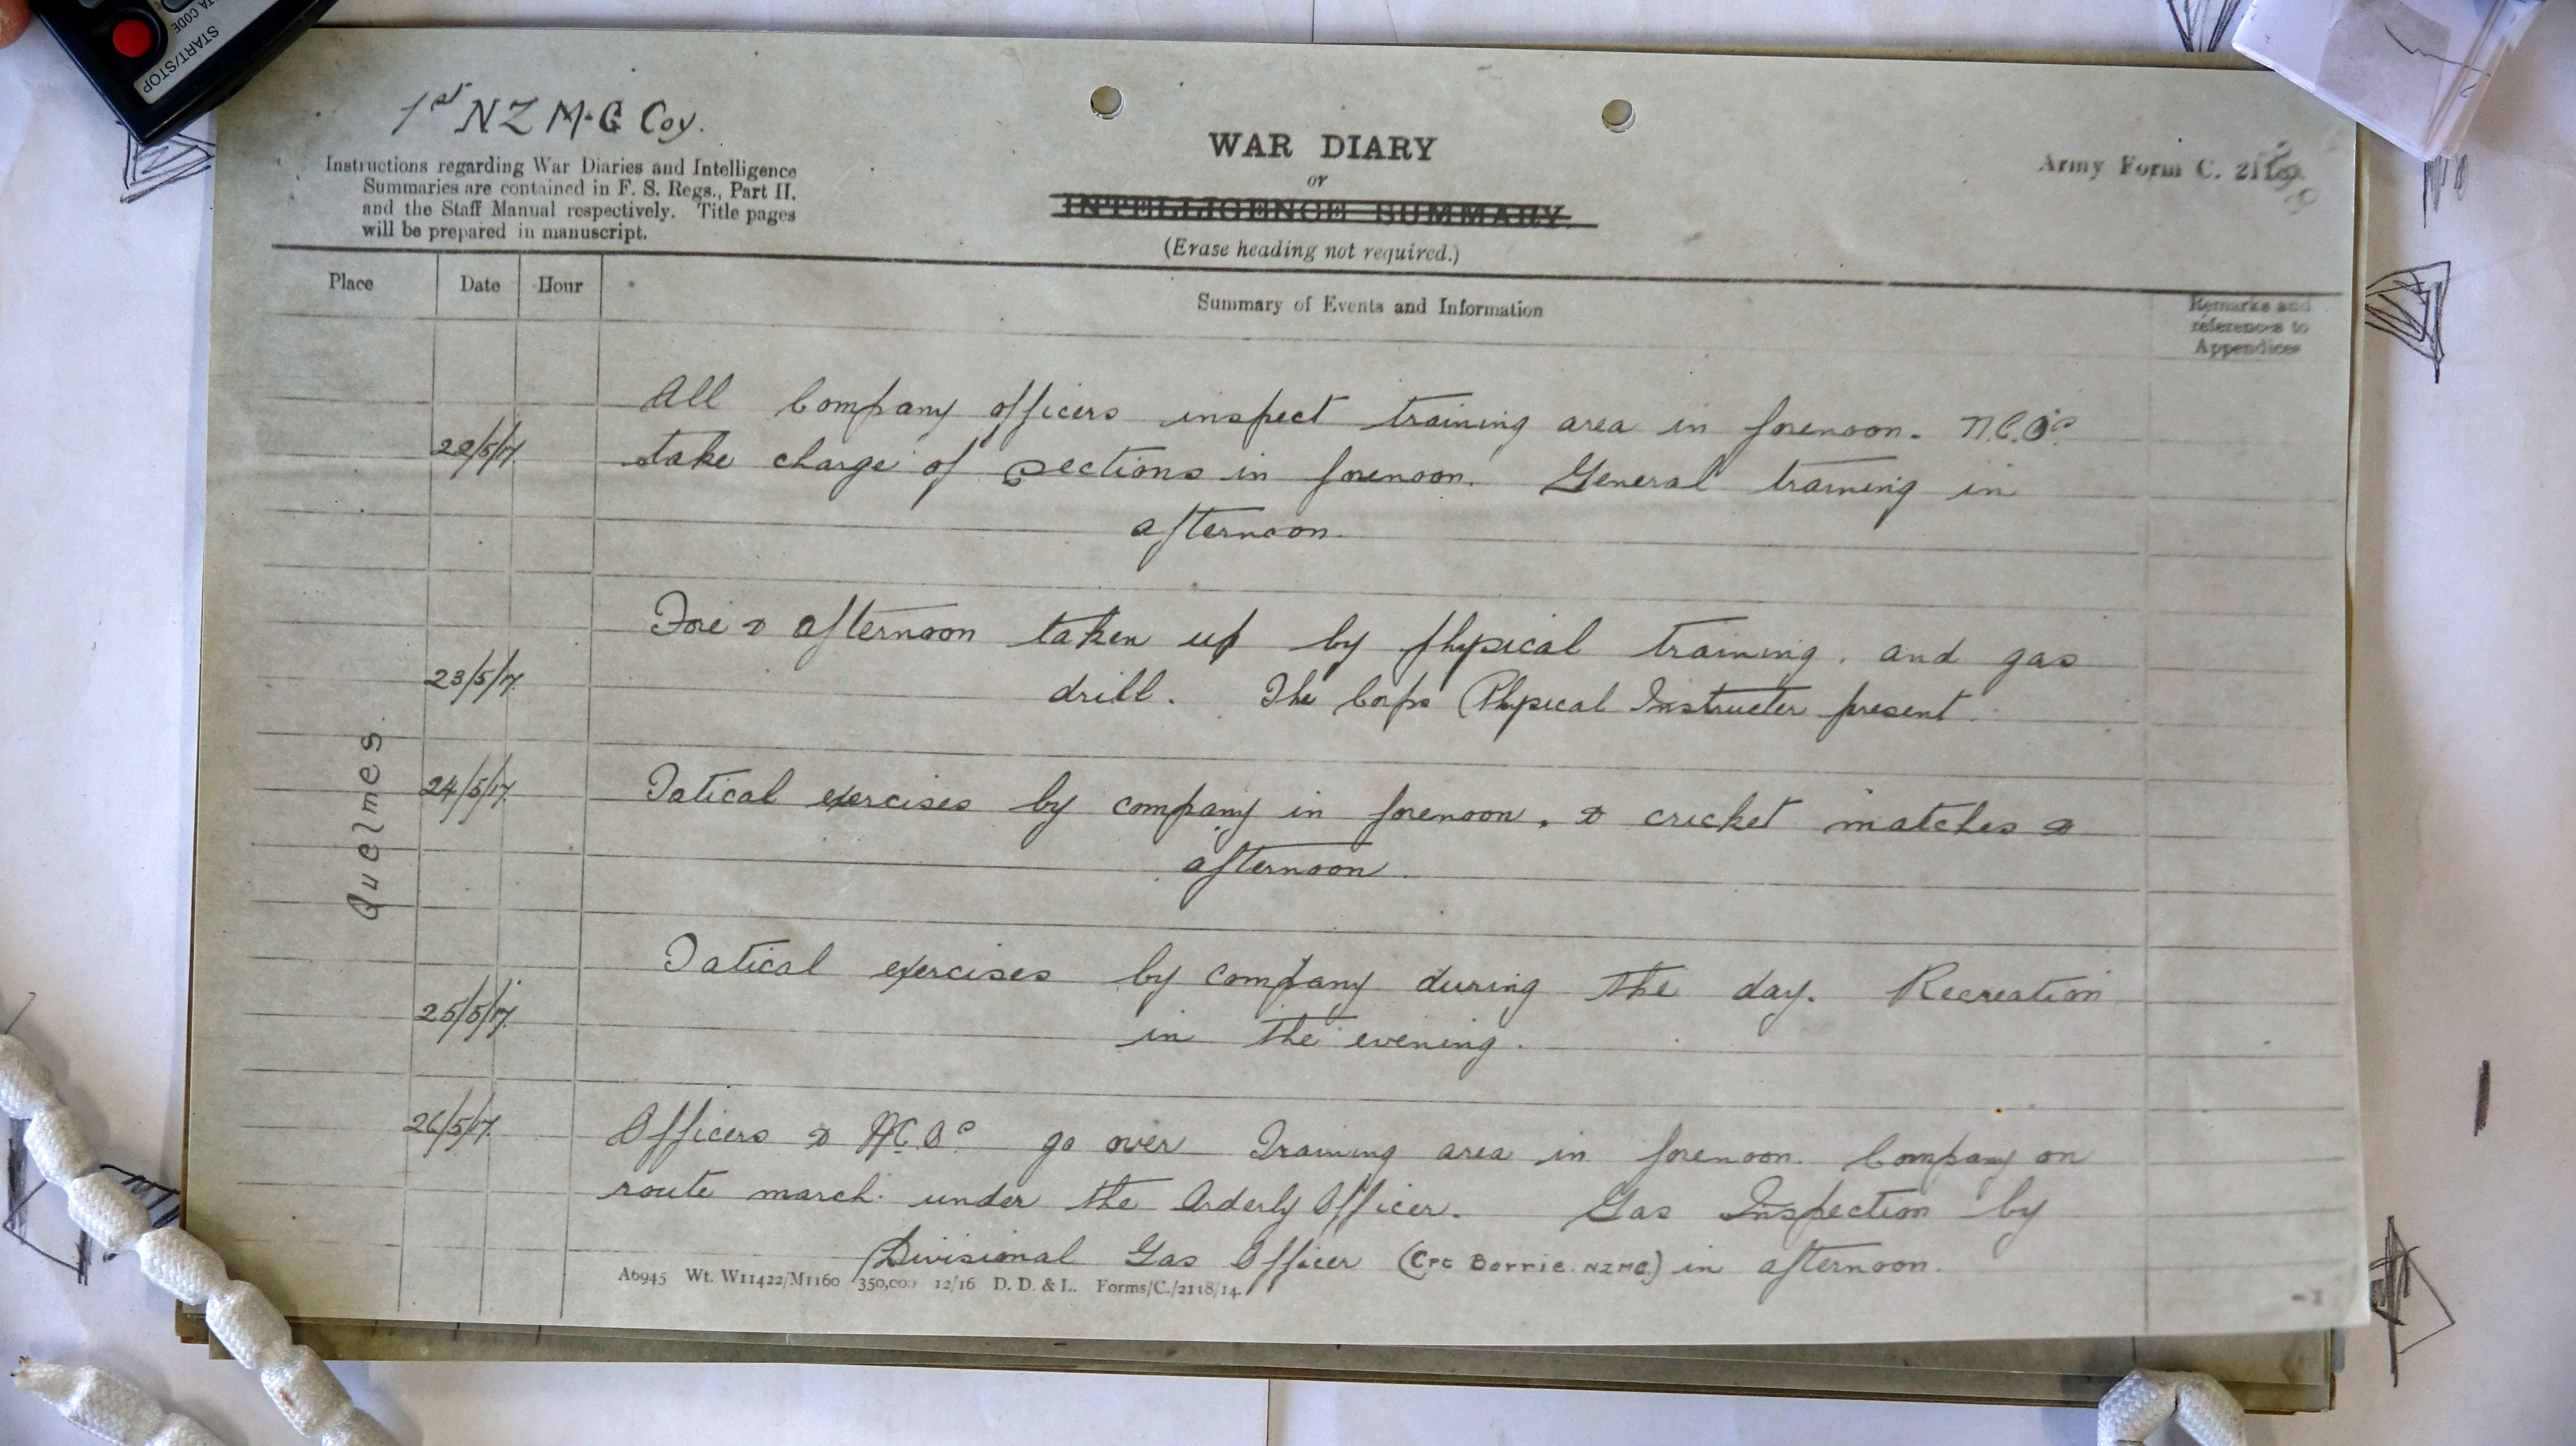 START/STOP
1st NZ M.G Coy.
Instructions regarding War Diaries and Intelligence
Summaries are contained in F. S. Regs., Part II.
and the Staff Manual respectively. Title pages
will be prepared in manuscript.
WAR DIARY
or
INTELLIGENCE SUMMARY.
(Erase heading not required.)
Army Form C. 2118
Place Date Hour Summary of Events and Information Remarks and
references to
Appendices
Quelmes
All Company officers inspect training area in forenoon. N.C.Os
22/5/17. take charge of sections in forenoon. General training in
afternoon.
Fore & afternoon taken up by physical training, and gas
23/5/17. drill. The Corps Physical Instructer present.
24/5/17. Tatical exercises by company in forenoon, & cricket matches &
afternoon.
Tatical exercises by company during the day. Recreation
25/5/17. in the evening.
26/5/17. Officers & N.C.Os go over Training area in forenoon. Company on
route march under the Orderly Officer. Gas Inspection by
Divisional Gas Officer (Cpt Borrie. NZMC.) in afternoon.
A6945 Wt. W11422/M1160 350,000 12/16 D. D. & L. Forms/C./2118/14.